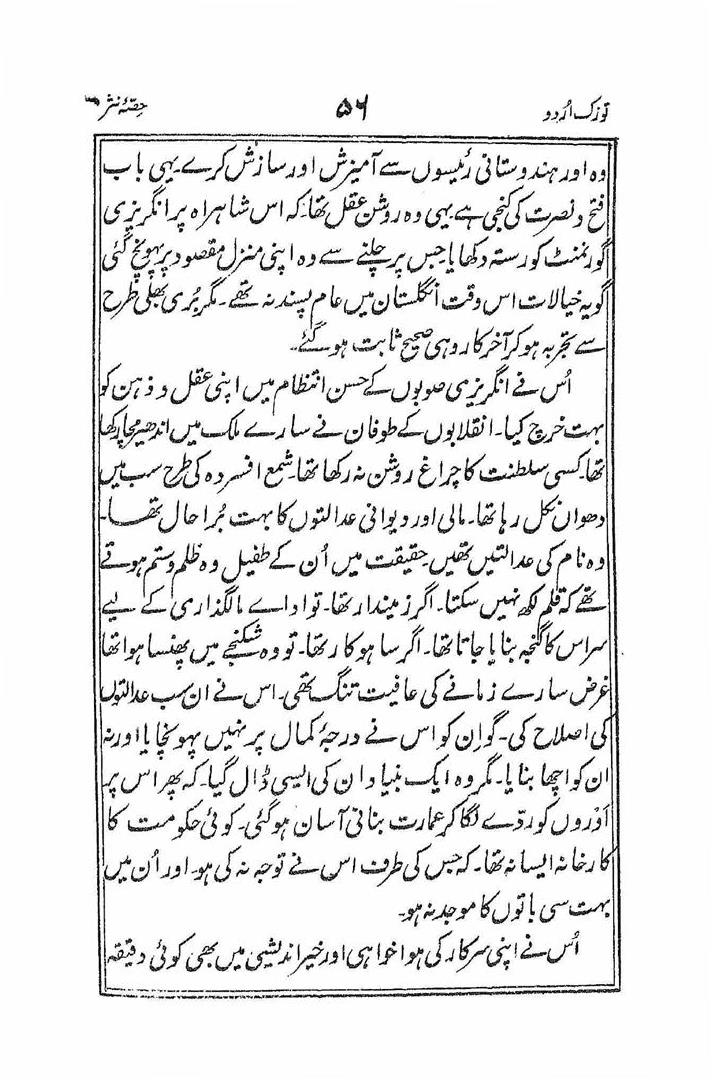 توزک اردو ۵۶ حصّۂ نثر
وہ اور ہندوستانی رئیسوں سے آمیزش اور سازش کرے۔ یہی باب
فتح و نصرت کی کنجی ہے۔ یہی وہ روشن عقل تھا کہ اس شاہراہ پر انگریزی
گورنمنٹ کو رستہ دکھایا جس پر چلنے سے وہ اپنی منزل مقصود پر پہونچ گئی
گو یہ خیالات اس وقت انگلستان میں عام پسند نہ تھے۔ مگر بُری بھلی طرح
سے تجربہ ہو کر آخر کار وہی صحیح ثابت ہو گئے۔
اُس نے انگریزی صوبوں کے حسن انتظام میں اپنی عقل و ذہن کو
بہت خرچ کیا۔ انقلابوں کے طوفان نے سارے ملک میں اندھیر مچا رکھا
تھا۔ کسی سلطنت کا چراغ روشن نہ رکھا تھا۔ شمع افسردہ کی طرح سب میں
دھواں نکل رہا تھا۔ مالی اور دیوانی عدالتوں کا بہت بُرا حال تھا۔
وہ نام کی عدالتیں تھیں۔ حقیقت میں اُن کے طفیل وہ ظلم و ستم ہوتے
تھے کہ قلم لکھ نہیں سکتا۔ اگر زمیندار تھا۔ تو اداے مالگذاری کے لیے
سر اس کا گنجہ بنایا جاتا تھا۔ اگر ساہوکار تھا۔ تو وہ شکنجے میں پھنسا ہوا تھا
غرض سارے زمانے کی عافیت تنگ تھی۔ اس نے ان سب عدالتوں
کی اصلاح کی۔ گو اِن کو اس نے درجۂ کمال پر نہیں پہونچایا اور نہ
ان کو اچھا بنایا۔ مگر وہ ایک بنیاد ان کی ایسی ڈال گیا۔ کہ پھر اس پر
اَوروں کو ردّے لگا کر عمارت بنانی آسان ہو گئی۔ کوئی حکومت کا
کارخانہ ایسا نہ تھا۔ کہ جس کی طرف اس نے توجہ نہ کی ہو۔ اور اُن میں
بہت سی باتوں کا موجد نہ ہو۔
اُس نے اپنی سرکار کی ہوا خواہی اور خیر اندیشی میں بھی کوئی دقیقہ